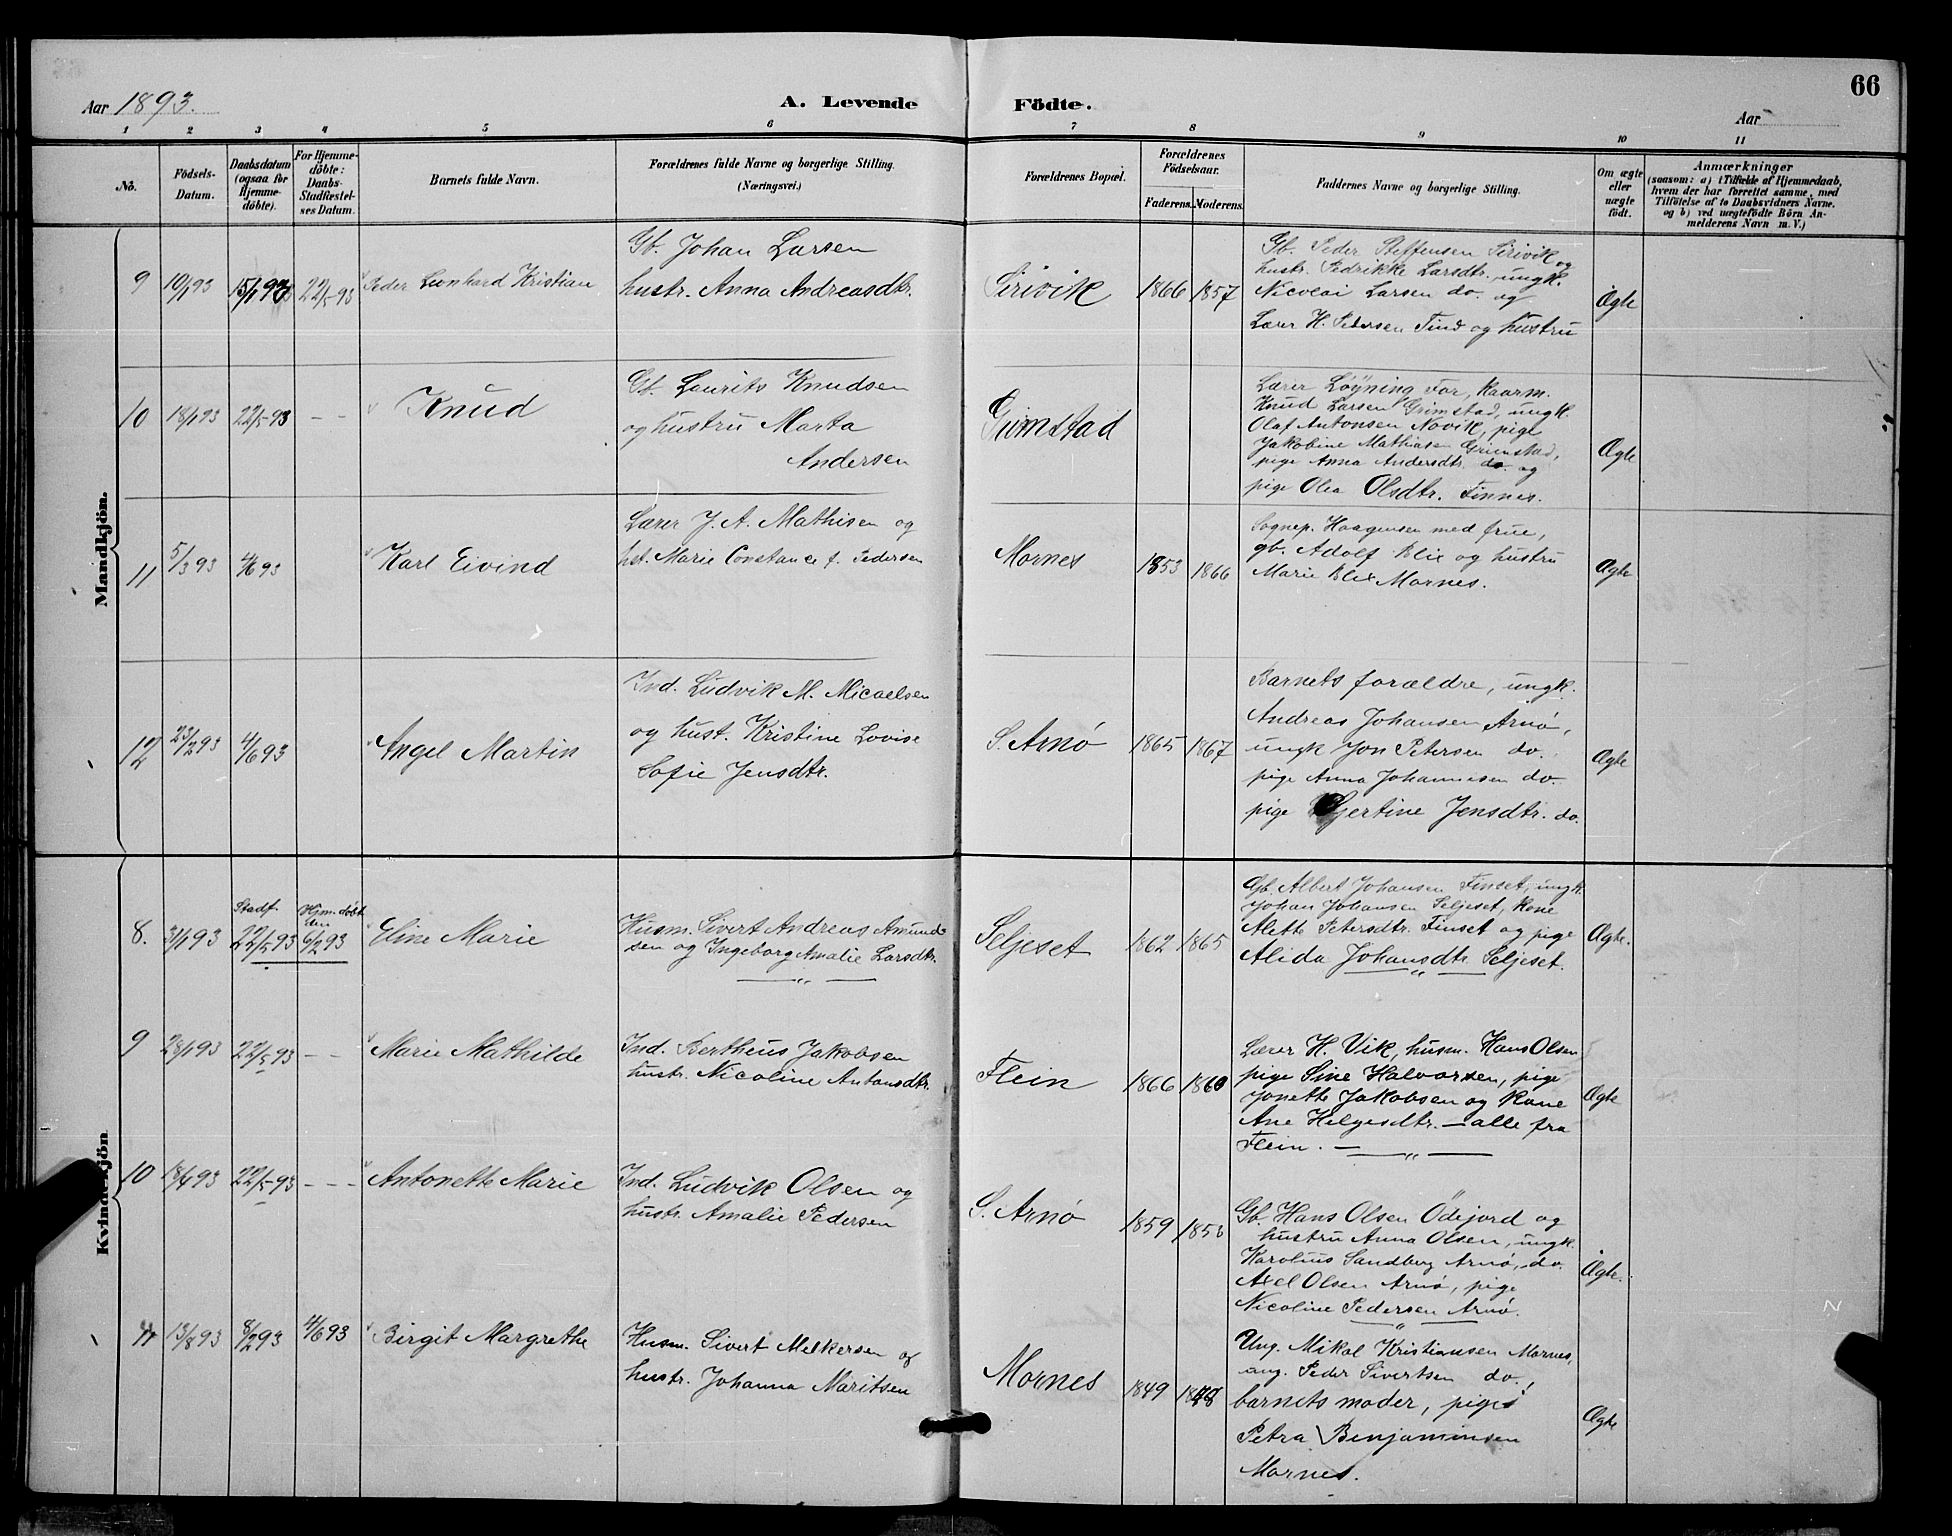 66
Aar 1893.
A. Levende Födte.
Aar
1 2 3 4 5 6 7 8 9 10 11
No.
Födsels-
Datum.
Daabsdatum
(ogsaa for
Hjemme-
döbte).
For Hjemme-
döbte:
Daabs-
Stadfæstel-
ses Datum.
Barnets fulde Navn.
Forældrenes fulde Navne og borgerlige Stilling.
(Næringsvei.)
Forældrenes Bopæl.
Forældrenes
Födselsaar.
Faderens. Moderens.
Faddernes Navne og borgerlige Stilling.
Om ægte
eller
uægte
födt.
Anmærkninger
(saasom: a) i Tilfælde af Hjemmedaab,
hvem der har forrettet samme, med
Tilföielse af to Daabsvidners Navne.
og b) ved uægtefödte Börn An-
melderens Navn m. V.)
Mandkjön.
9 10/1 93 15/1 93 22/5 93 Peder Leonhard Kristian
Gb. Johan Larsen
hustr. Anna Andreasdtr.
Sirivik 1866 1857
Gb. Peder Steffensen Sirivik og
hustr. Pedrikke Larsdtr. ungk.
Nicolai Larsen do. og
Lærer H. Pedersen Tind og hustru
Ægte
10 18/1 93 22/5 93 - - Knud
Gb. Laurits Knudsen
og hustru Marta
Andersen
Grimstad
Lærer Løyning For, kaarm.
Knud Larsen Grimstad, ungk.
Olaf Antonsen Novik, pige
Jakobine Mathiasen Grimstad,
pige Anna Andersdtr. do. og
pige Olea Olsdtr. Finnes.
Ægte
11 5/3 93 4/6 93 Karl Eivind
Lærer J. A. Mathisen og
hst. Marie Constance f. Pedersen
Mornes 1853 1866
Sognep. Haagensen med frue,
gb. Adolf Blix og hustru
Marie Blix Mornes.
Ægte
12 23/2 93 4/6 93 Angel Martin
Ind. Ludvik M. Micaelsen
og hust. Kristine Lovise
Sofie Jensdtr.
S. Arnø 1865 1867
Barnets forældre, ungk.
Andreas Johansen Arnø,
ungk Jon Petersen do.
pige Anna Johannesen do.
pige Gjertine Jensdtr. do.
Ægte
Kvindekjön
8. 3/1 93 Stadf. 22/5 93 Hjm. døbt 6/2 93 Eline Marie
Husm. Sivert Andreas Amund-
sen og Ingeborg Amalie Larsdtr.
Seljeset 1862 1865
Gb. Albert Johansen Finset, ungk.
Johan Johansen Seljeset, kone
Alette Petersdtr. Finset og pige
Alida Johansdtr Seljeset.
Ægte.
9 28/1 93 22/5 93 - - Marie Mathilde
Ind. Bertheus Jakobsen
hustr. Nicoline Antonsdtr.
Flein 1866 1860
Lærer H. Vik, husm. Hans Olsen
pige Sine Halvorsen, pige
Jonette Jakobsen og kone
Ane Helgesdtr. — alle fra
Flein. —
Ægte
10 18/4 93 22/5 93 - - - Antonette Marie
Ind. Ludvik Olsen og
hustr. Amalie Pedersen
S. Arnø 1859 1853
Gb. Hans Olsen Ödejord og
hustru Anna Olsen, ungk.
Karolius Sandberg Arnø, do.
Axel Olsen Arnø, pige
Nicoline Pedersen Arnø.
Ægte.
11 13/8 93 8/2 93 4/6 93 Birgit Margrethe
Husm. Sivert Melkersen og
hustr. Johanna Maritsen
Mornes 1849 1848
Ung. Mikal Kristiansen Mornes,
ung. Peder Sivertsen do.,
barnets moder, pige
Petra Benjaminsen
Mornes.
Ægte